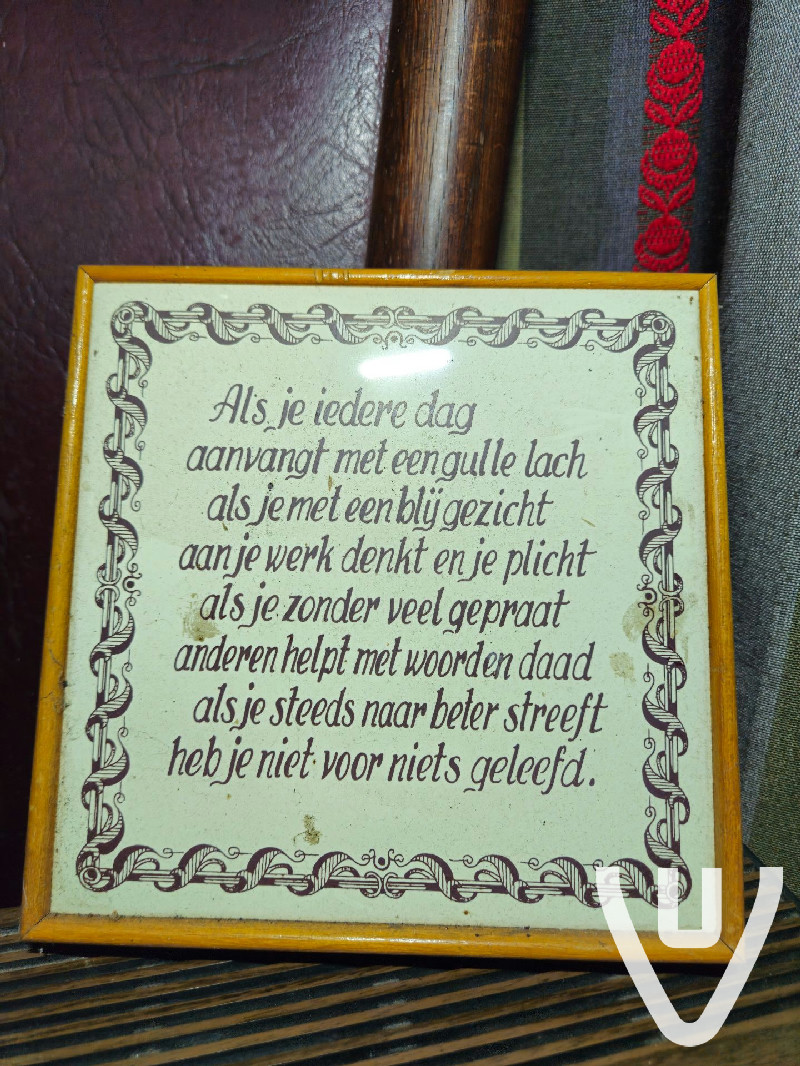 Als je iedere dag
aanvangt met een gulle lach
als je met een blij gezicht
aan je werk denkt en je plicht
als je zonder veel gepraat
anderen helpt met woord en daad
als je steeds naar beter streeft
heb je niet voor niets geleefd.